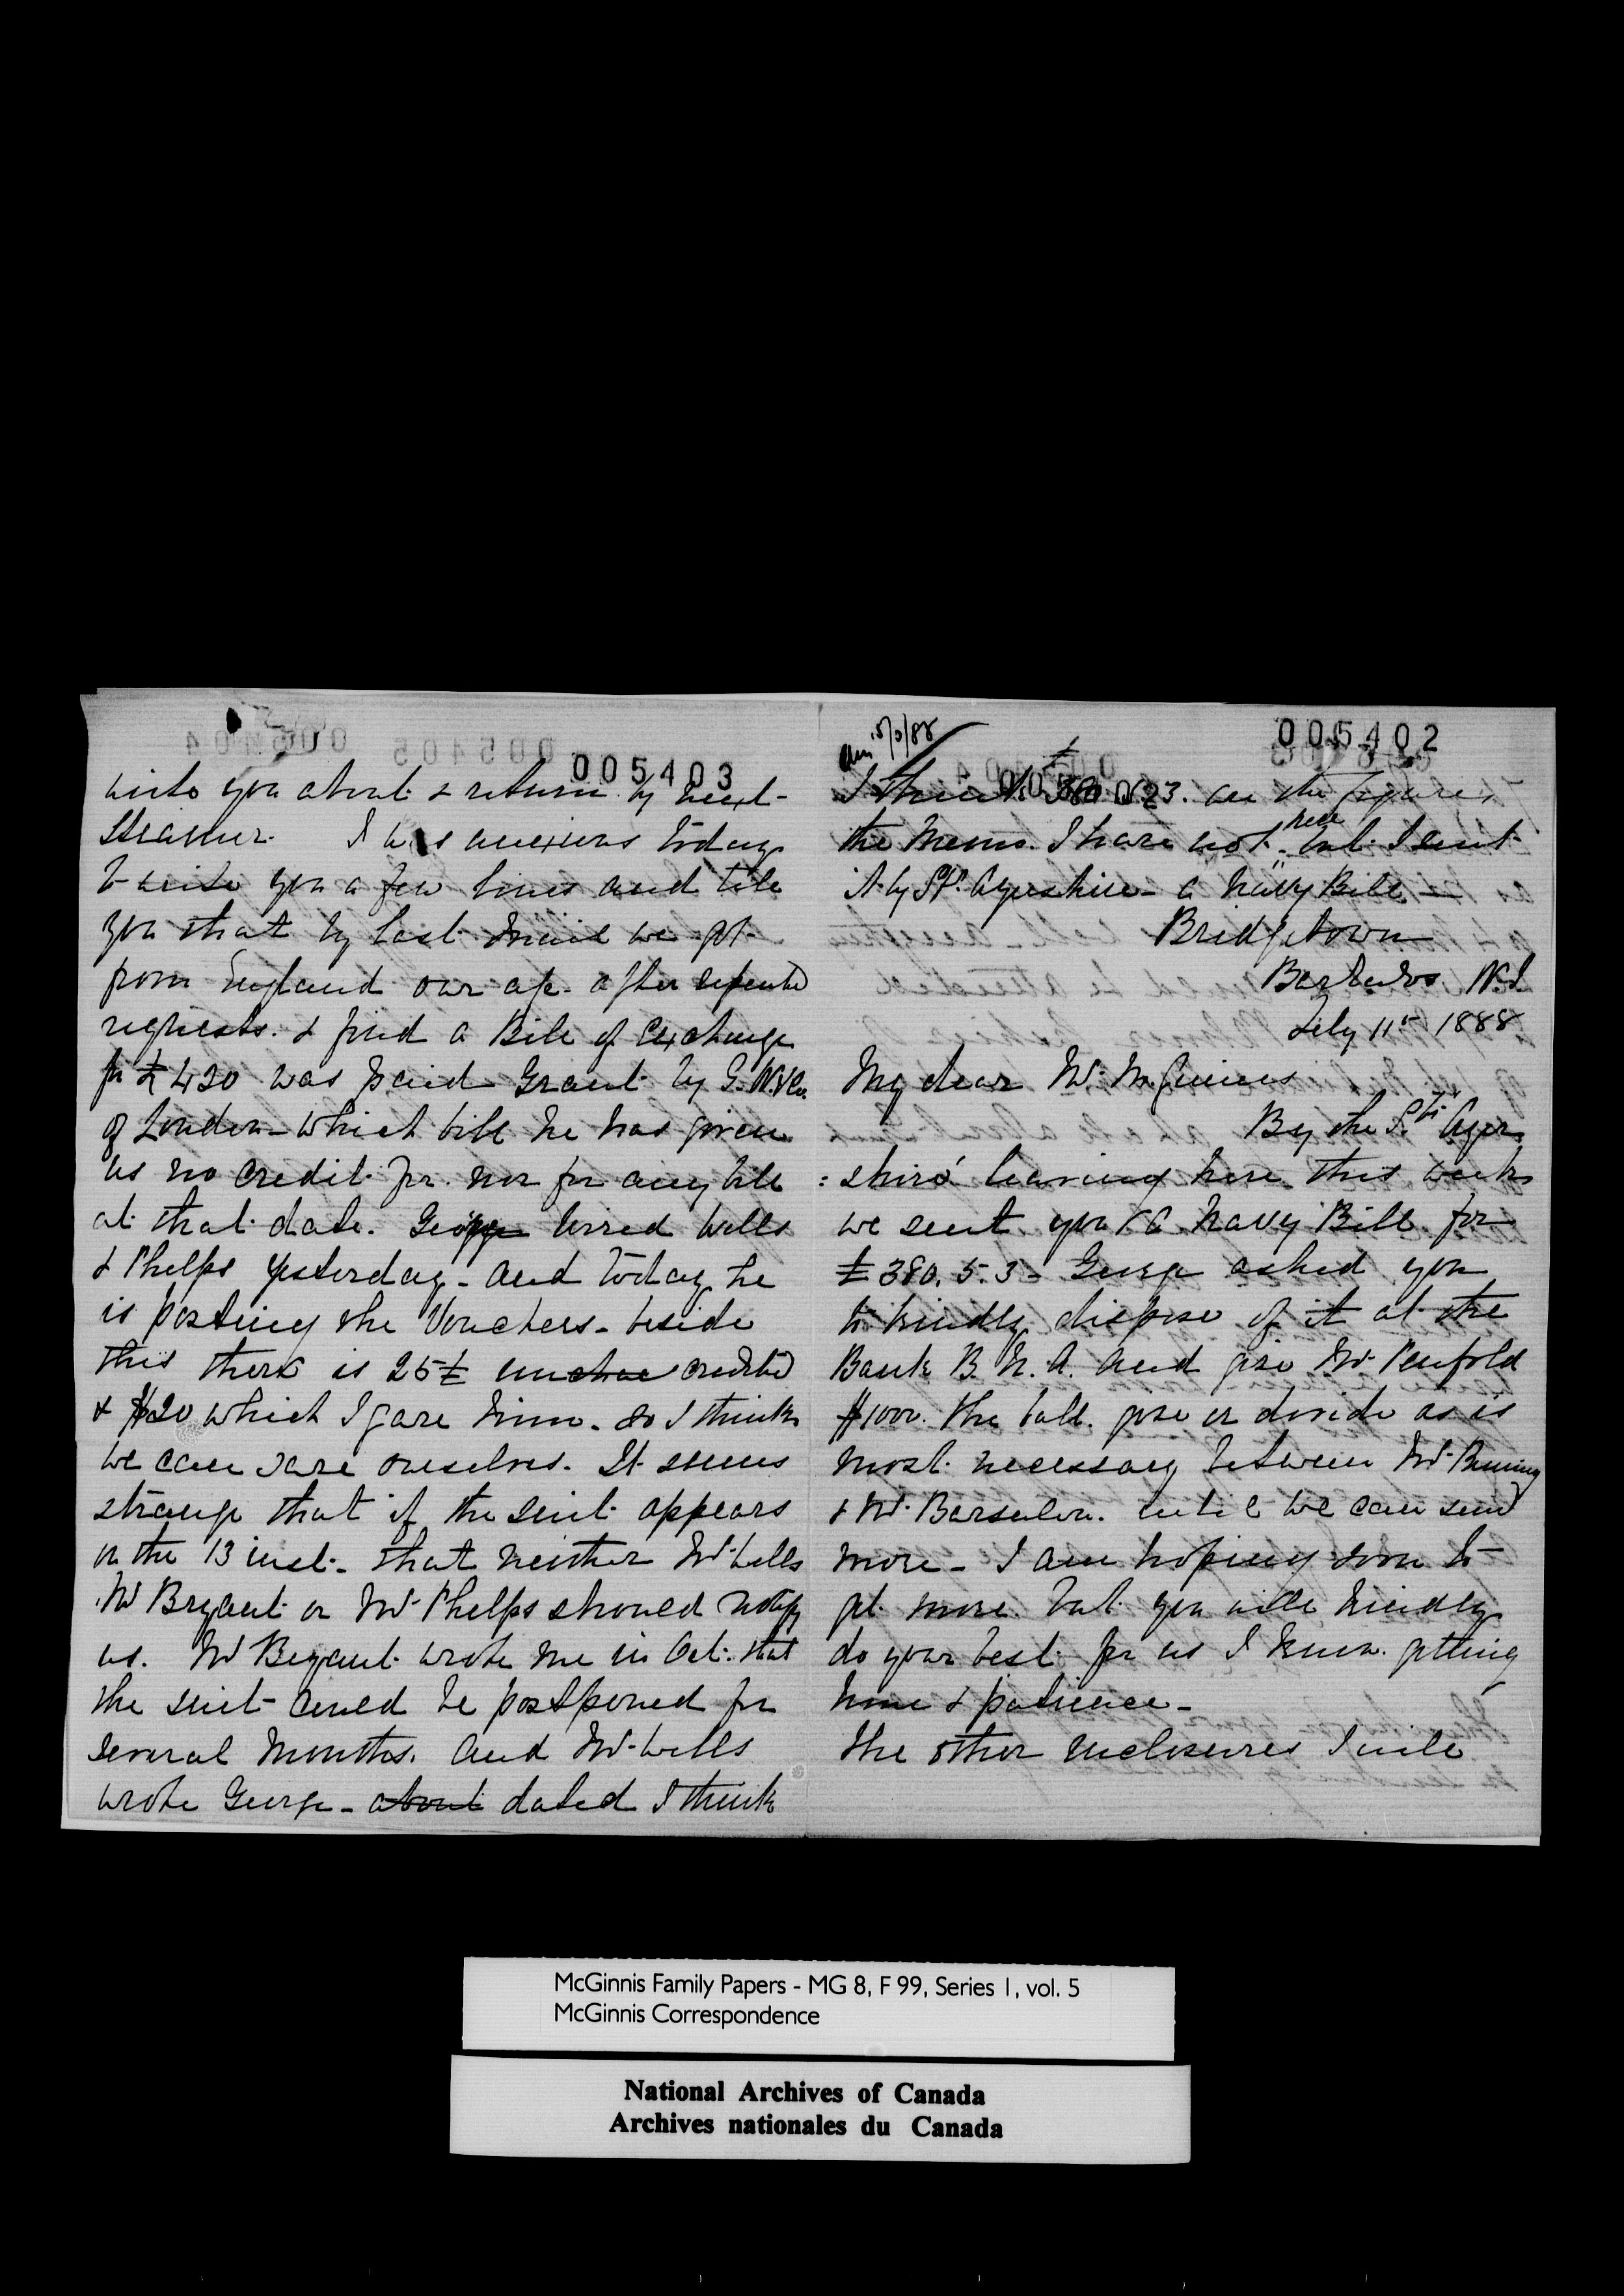 005402
I think £380.5.3. are the figures
the memo. I have not here but I sent
it by SS. Ayrshire - a Navy Bill -
Bridgetown
Barbados W.I.
July 11th 1888
My dear Mr. McGinnis
By the S.S. Ayr
:shire leaving here this week
we sent you a Navy Bill for
£380.5.3 - George asked you
to kindly dispose of it at the
Bank B.N.A. and give Mr. Penfold
$1000. The ball. give or divide as is
most necessary between Mr.
& Mr. Barsalou. until we can send
more - I am hoping soon to
get more. but you will kindly
do your best for us I know. getting
time & patience -
The other enclosures I will
005403
write you about & return by next
steamer. I was anxious today
to write you a few lines and tell
you that by last mail we got
from England our a/c. after repeated
requests. & find a Bill of Exchange
for £420 was paid Grant by G.W. & Co.
of London - which bill he has given
us no credit for. nor for any bill
at that date. George wired Wells
& Phelps yesterday - and today he
is posting the Vouchers - beside
this there is 25£ un credited
& $20 which I gave him - so I think
we can save ourselves. It seems
strange that if the suit appears
on the 13 inst - that neither Mr. Wells
Mr Bryant or Mr. Phelps should notify
us. Mr Bryant wrote me in Oct. that
the suit could be postponed for
several months. and Mr. Wells
wrote George - about dated I think
McGinnis Family Papers - MG 8, F 99, Series 1, vol. 5
McGinnis Correspondence
National Archives of Canada
Archives nationales du Canada